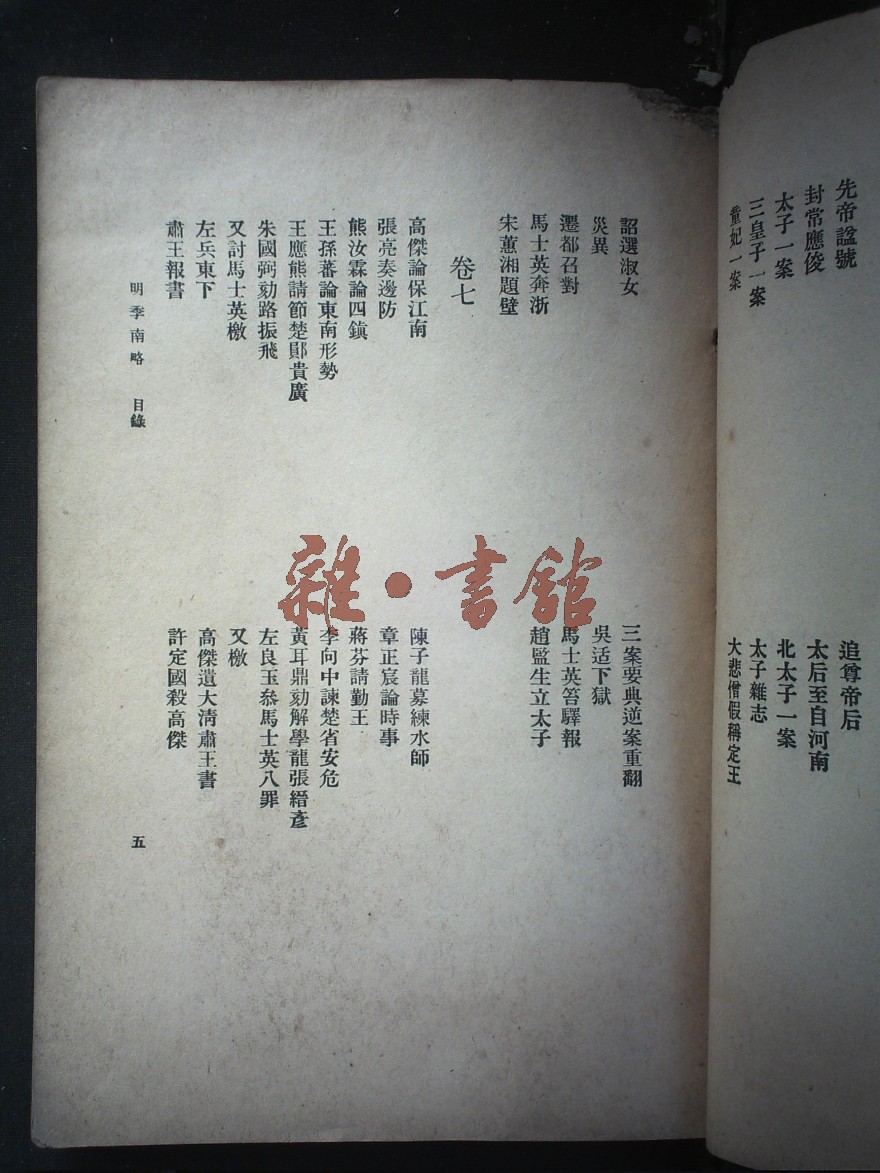 先帝諡號
追尊帝后
封常應俊
太后至自河南
太子一案
北太子一案
三皇子一案
太子雜志
童妃一案
大悲僧假稱定王
詔選淑女
三案要典逆案重翻
災異
吳适下獄
遷都召對
馬士英笞驛報
馬士英奔浙
趙監生立太子
宋蕙湘題壁
卷七
高傑論保江南
陳子龍募練水師
張亮奏邊防
章正宸論時事
熊汝霖論四鎮
蔣芬請勤王
王孫蕃論東南形勢
李向中諫楚省安危
王應熊請節楚鄖貴廣
黃耳鼎劾解學龍張縉彥
朱國弼劾路振飛
左良玉叅馬士英八罪
又討馬士英檄
又檄
左兵東下
高傑遺大清肅王書
肅王報書
許定國殺高傑
明季南略 目錄
五
雜·書館